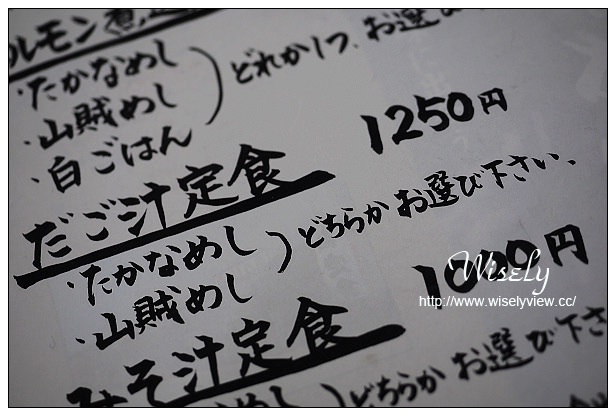 ルモン煮定
・たかなめし
・山賊めし
・白ごはん
どれか1つ、お選び
1250円
だご汁定食
・たかなめし
・山賊めし
どちらか お選び下さい、
1000円
みそ汁定食
かなめし
どちらか お選び下さ
Wisely
http://www.wiselyview.cc/